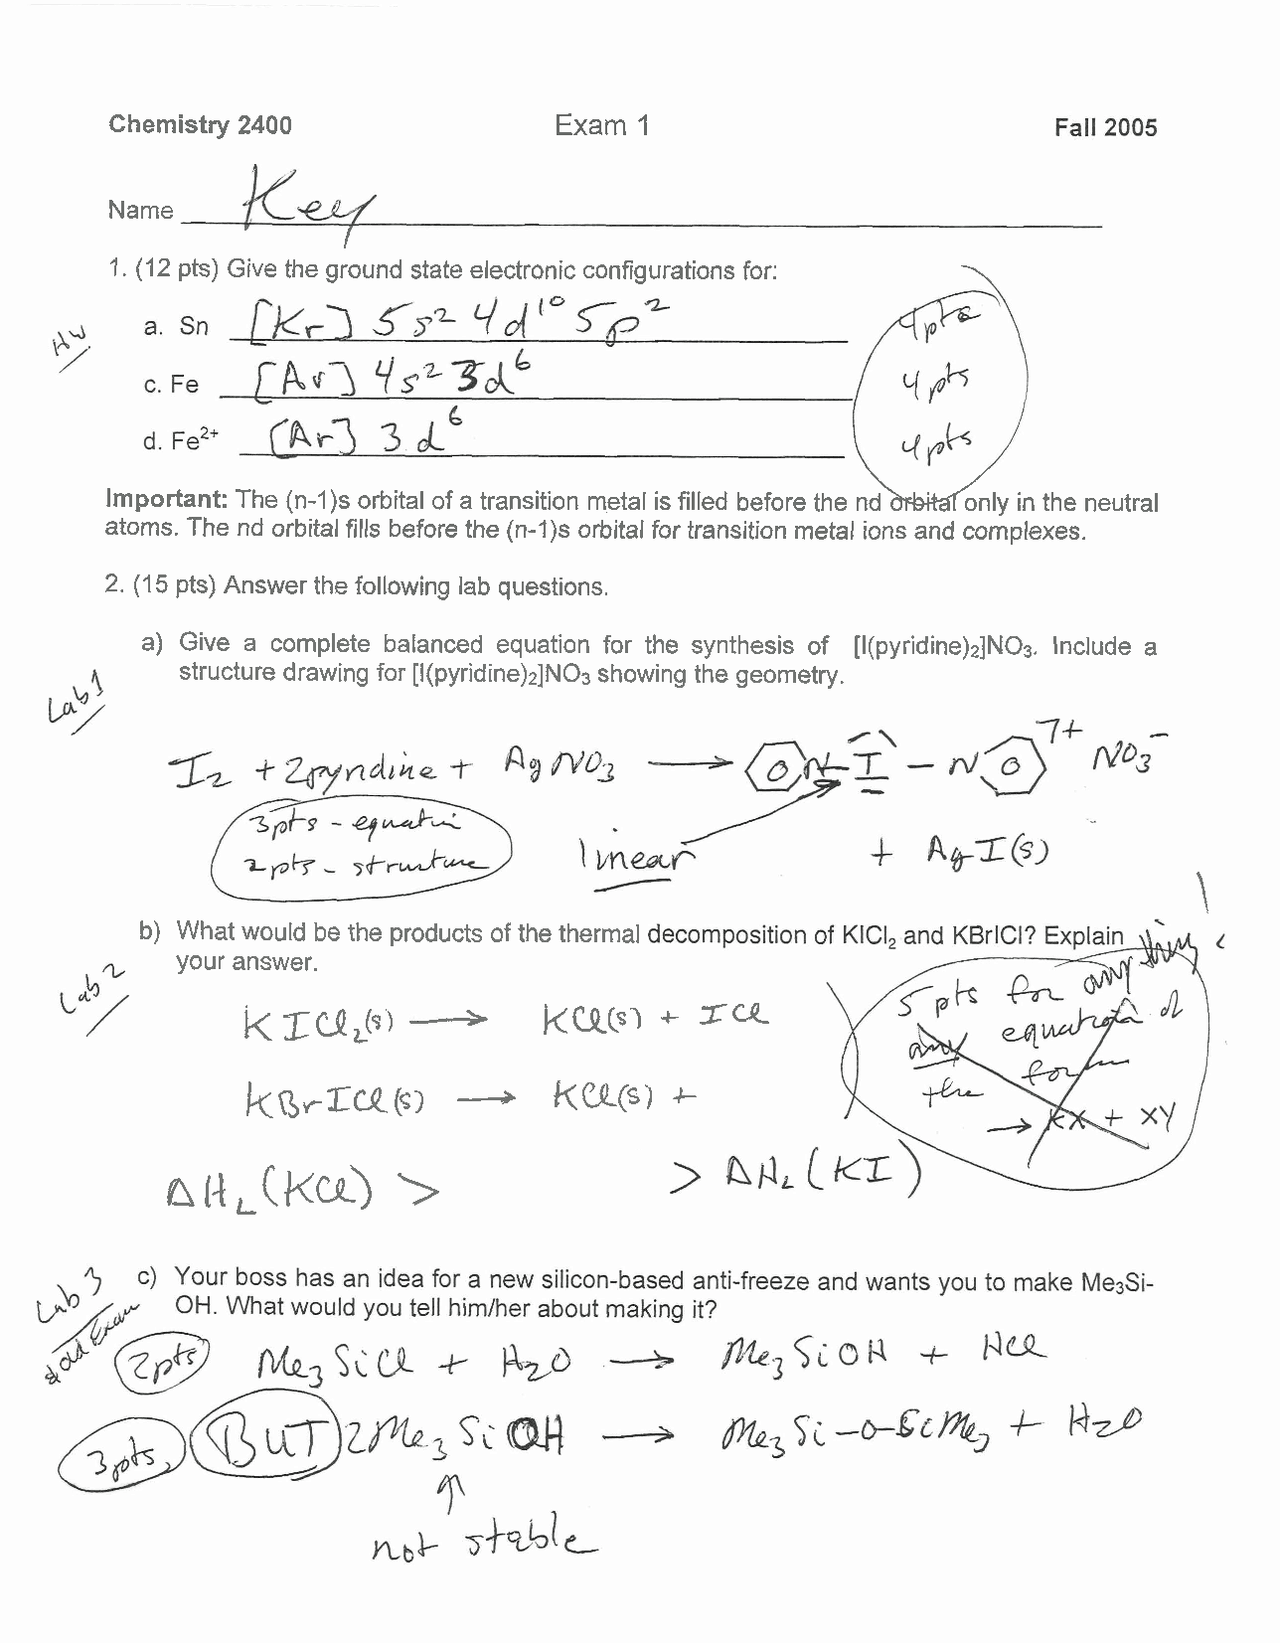 Chemistry 2400 Exam 1 Fall 2005
Name Key
1. (12 pts) Give the ground state electronic configurations for:
HW
a. Sn [Kr] 5s² 4d¹⁰ 5p² 4pts
c. Fe [Ar] 4s² 3d⁶ 4pts
d. Fe²⁺ [Ar] 3d⁶ 4pts
Important: The (n-1)s orbital of a transition metal is filled before the nd orbital only in the neutral
atoms. The nd orbital fills before the (n-1)s orbital for transition metal ions and complexes.
2. (15 pts) Answer the following lab questions.
a) Give a complete balanced equation for the synthesis of [I(pyridine)₂]NO₃. Include a
structure drawing for [I(pyridine)₂]NO₃ showing the geometry.
Lab 1
I₂ + 2pyridine + AgNO₃ → N – I – N ⁺ NO₃⁻
3pts - equation
2pts - structure
linear + AgI(s)
b) What would be the products of the thermal decomposition of KICl₂ and KBrICl? Explain
your answer.
Lab 2
5 pts for anything
any equation of
the form
→ KX + XY
KICl₂(s) → KCl(s) + ICl
KBrICl(s) → KCl(s) +
ΔH_L(KCl) > > ΔH_L(KI)
c) Your boss has an idea for a new silicon-based anti-freeze and wants you to make Me₃Si-
OH. What would you tell him/her about making it?
Lab 3
& Old Exam
2pts Me₃SiCl + H₂O → Me₃SiOH + HCl
3pts BUT 2Me₃SiOH → Me₃Si-O-SiMe₃ + H₂O
↑
not stable